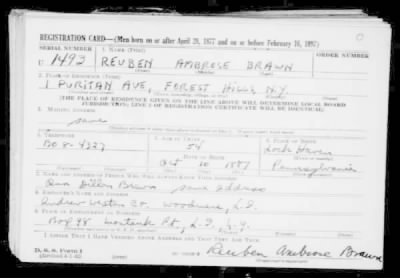 REGISTRATION CARD—(Men born on or after April 28, 1877 and on or before February 16, 1897)
SERIAL NUMBER 1. NAME (Print) ORDER NUMBER
U 1493 REUBEN AMBROSE BRAWN
(First) (Middle) (Last)
2. PLACE OF RESIDENCE (Print)
1 PURITAN AVE, FOREST HILLS N.Y.
[THE PLACE OF RESIDENCE GIVEN ON THE LINE ABOVE WILL DETERMINE LOCAL BOARD
JURISDICTION; LINE 2 OF REGISTRATION CERTIFICATE WILL BE IDENTICAL]
3. MAILING ADDRESS
same
4. TELEPHONE 5. AGE IN YEARS 6. PLACE OF BIRTH
BO 8-4327 54 Lock Haven
DATE OF BIRTH
Oct 10 1887 Pennsylvania
7. NAME AND ADDRESS OF PERSON WHO WILL ALWAYS KNOW YOUR ADDRESS
Brawn same address
8. EMPLOYER'S NAME AND ADDRESS
Andrew Weston Co. Woodmere, L.I.
9. PLACE OF EMPLOYMENT OR BUSINESS
Box 98 L.I. N.Y.
I AFFIRM THAT I HAVE VERIFIED ABOVE ANSWERS AND THAT THEY ARE TRUE.
D. S. S. Form 1
Reuben Ambrose Brawn